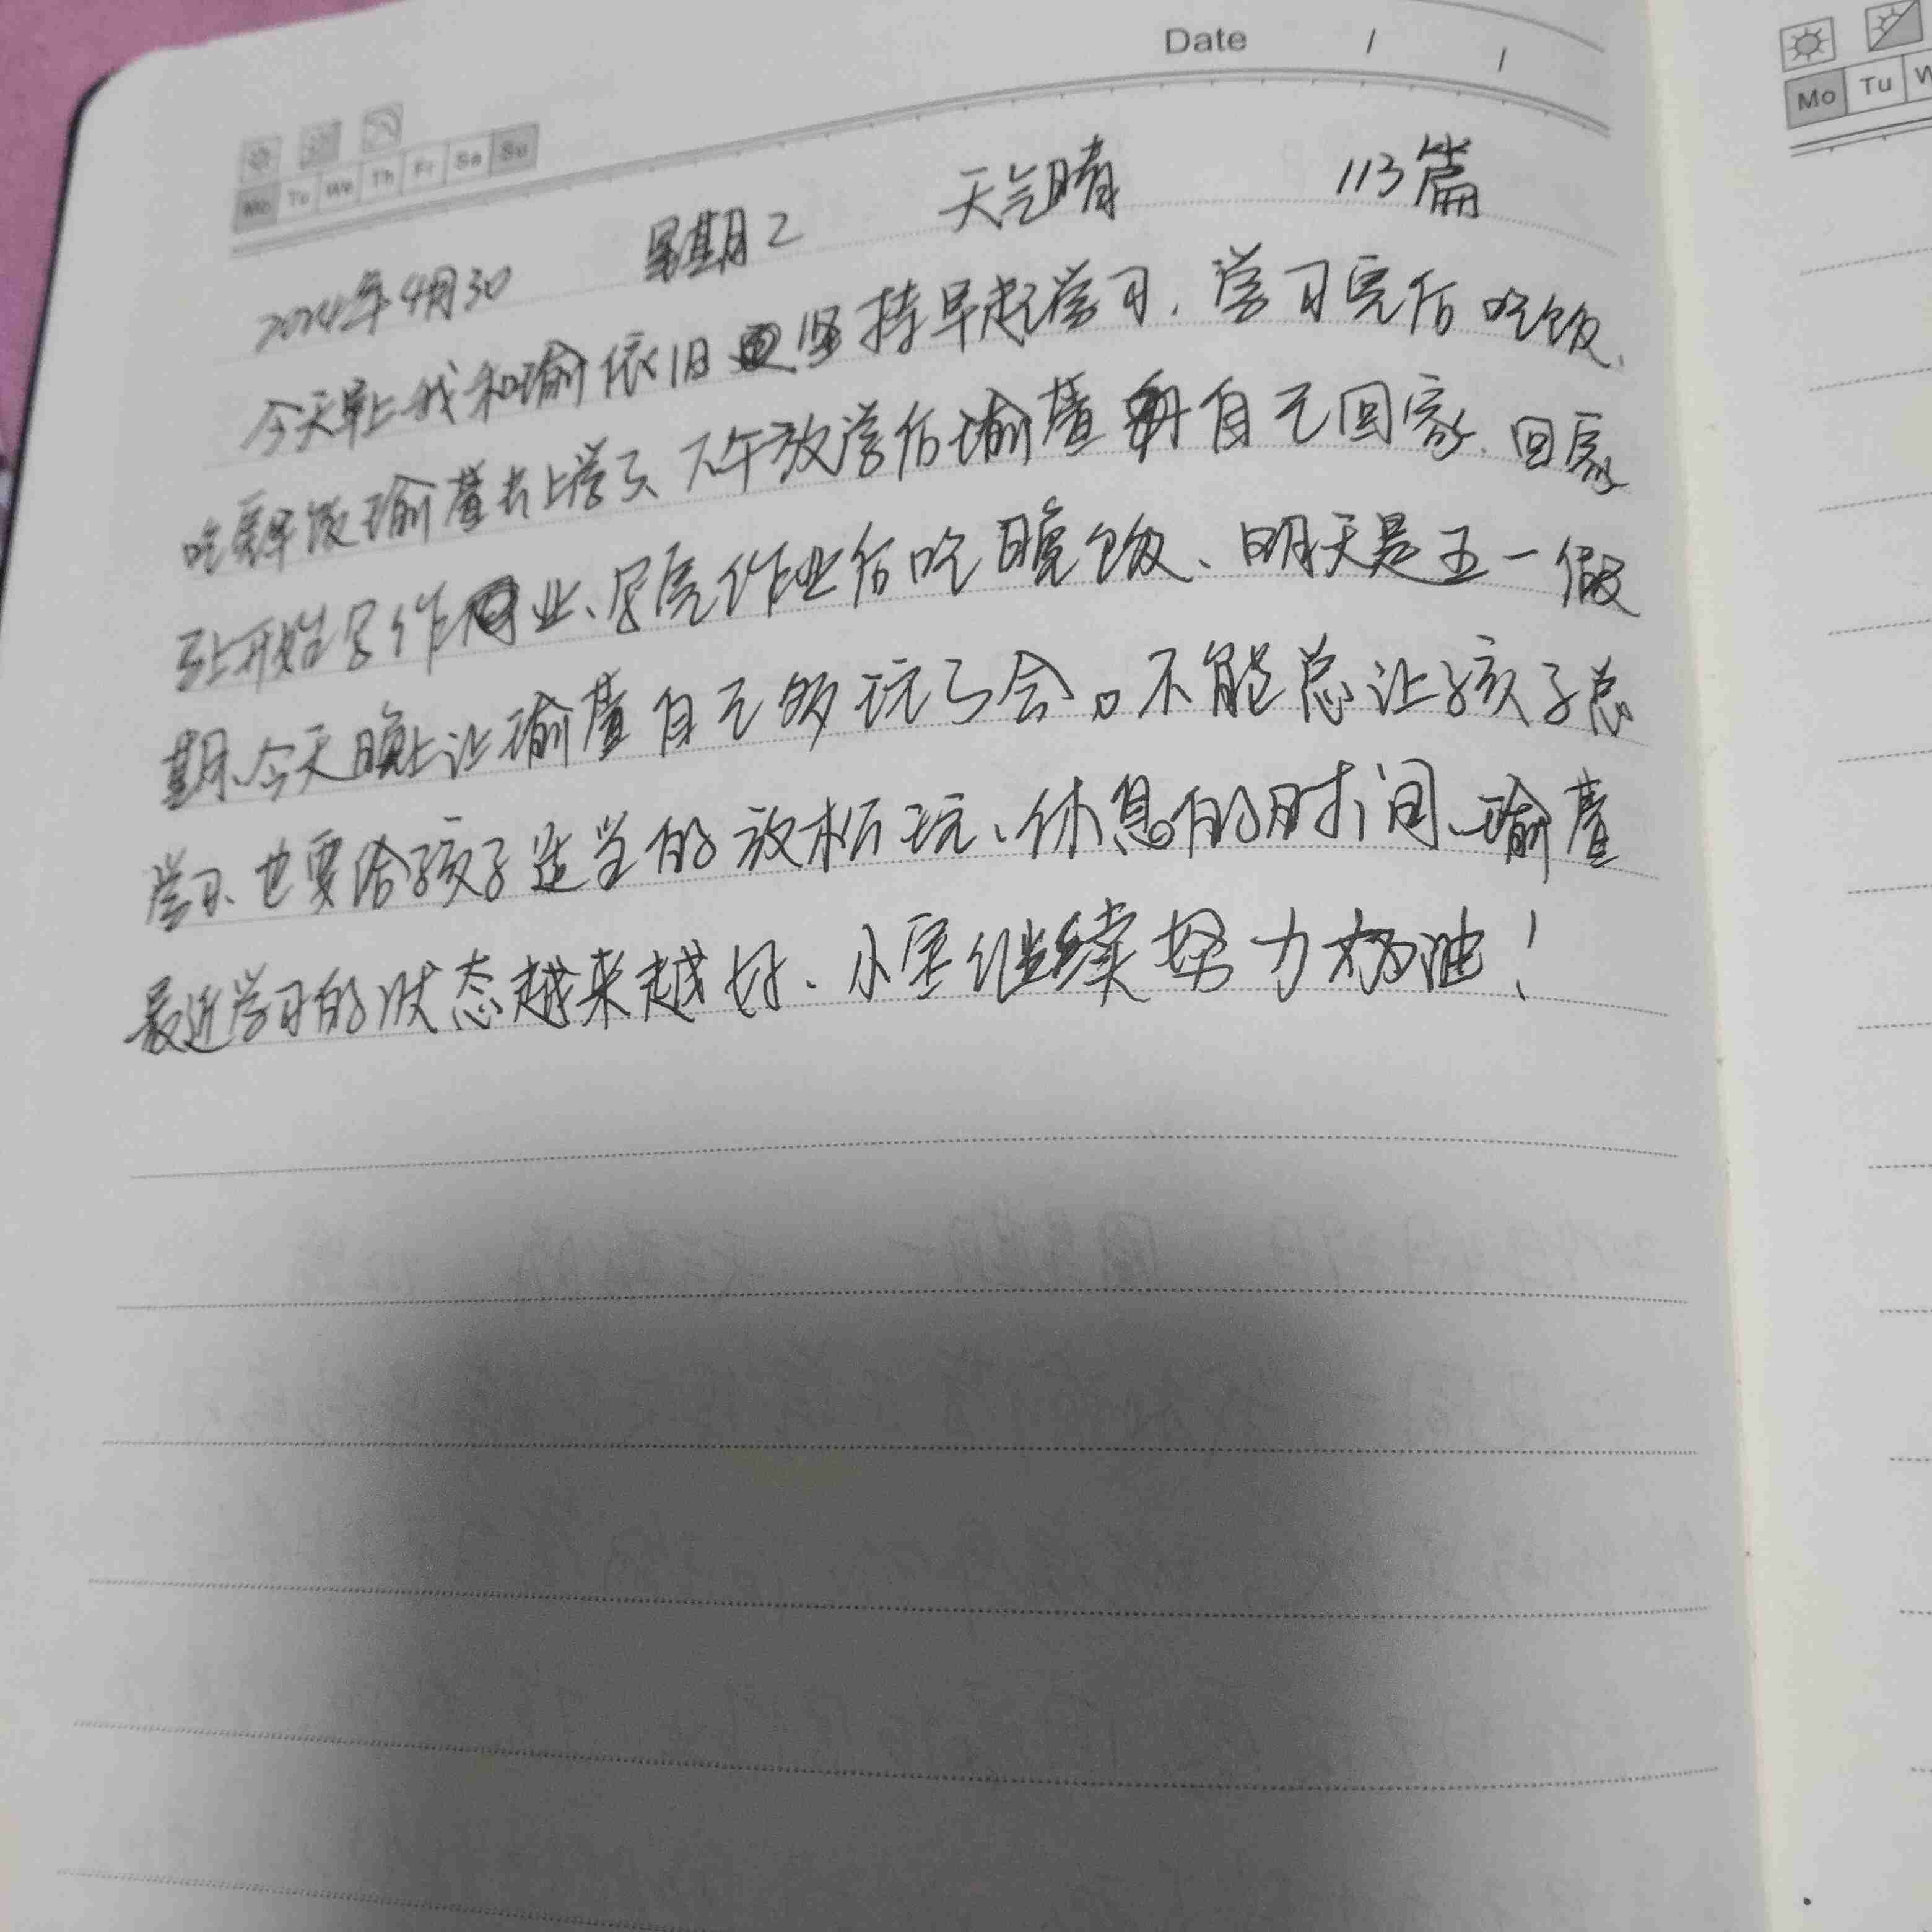 Date / /
Mo Tu We Th Fr Sa Su
Mo Tu W
2024年4月30 星期2 天气晴 113篇
今天早上我和瑜依旧坚持早起学习. 学习完后吃饭、
吃早饭瑜萱去上学了、下午放学后瑜萱自己回家、回家
马上开始写作业、写完作业后吃晚饭、明天是五一假
期、今天晚上让瑜萱自己多玩了会。不能总让孩子总
学习、也要给孩子适当的放松玩、休息的时间、瑜萱
最近学习的状态越来越好、小宝继续努力加油！